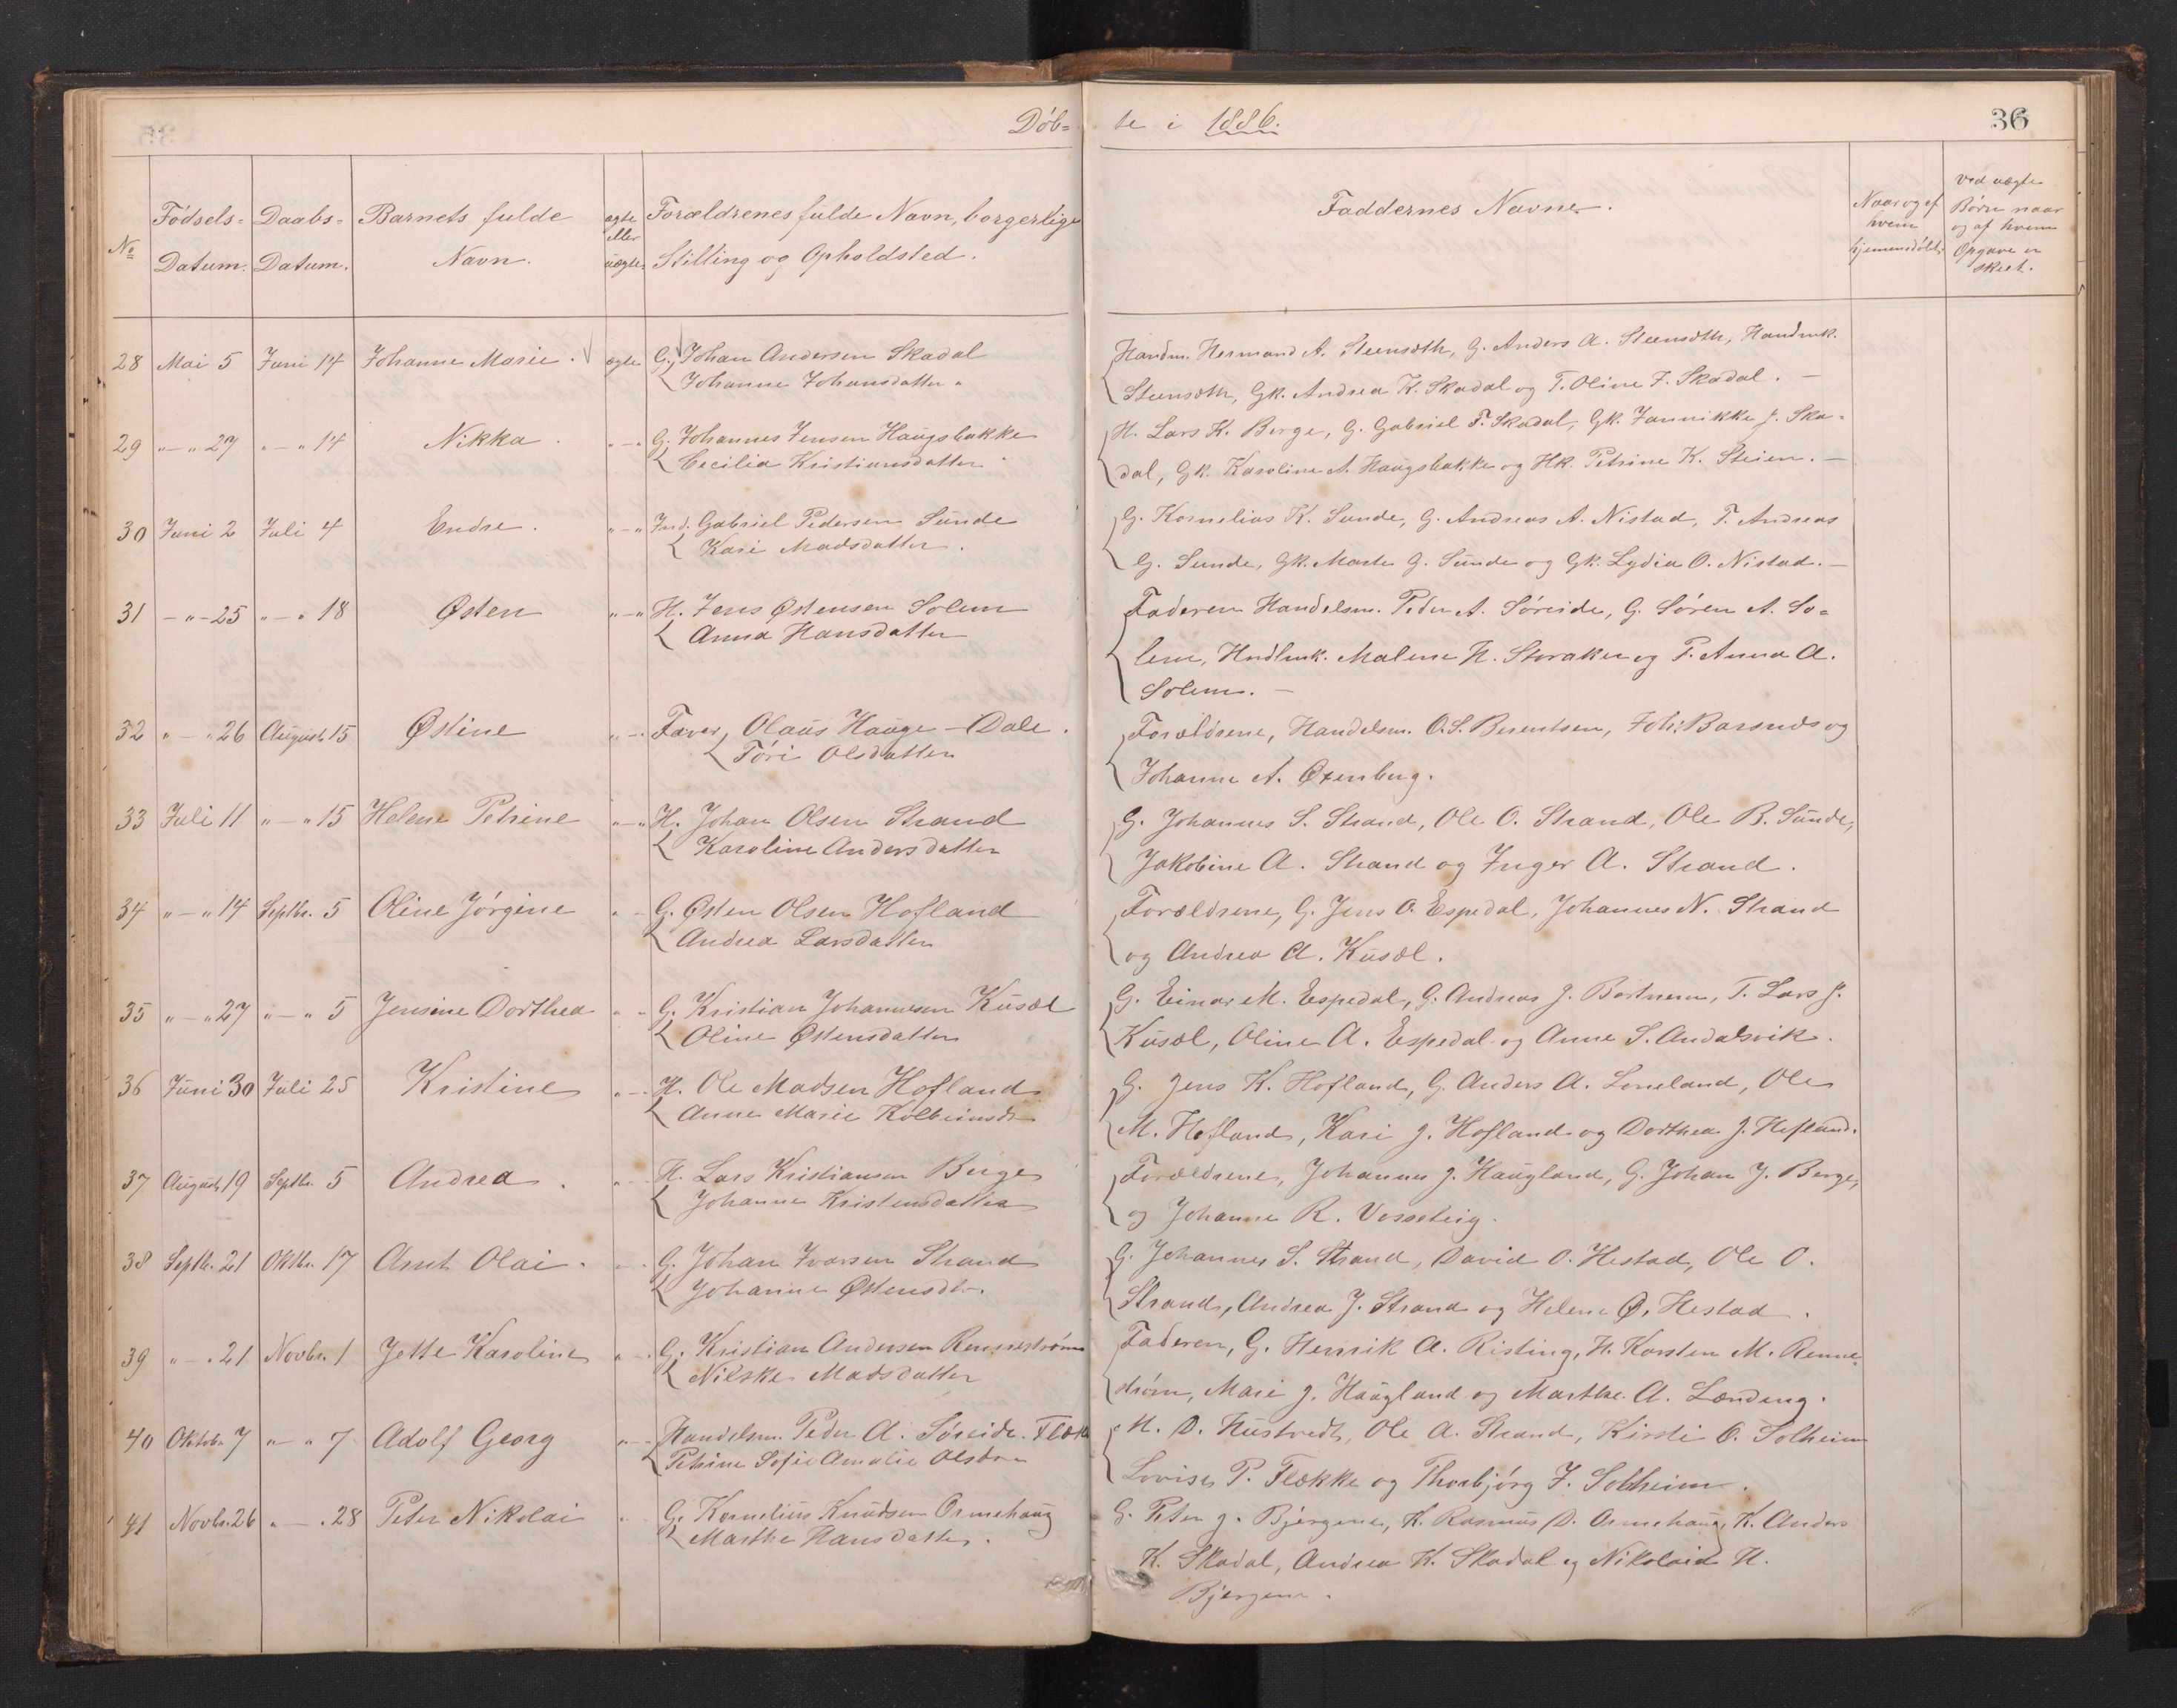 Döb- te i 1886. 36
No Födsels- Datum. Daabs- Datum. Barnets fulde Navn. ægte eller uægte Forældrenes fulde Navn, borgerlige Stilling og Opholdsted. Faddernes Navne. Naar og af hvem hjemmedöbt. Ved uægte Börn naar og af hvem Opgave er skeet.
28 Mai 5 Juni 14 Johanne Marie. ægte G. Johan Andersen Skadal Handm. Hermand A. Steensæth, G. Anders A. Steensæth, Handmk.
Johanne Johansdatter Steensæth, Gk. Andrea K. Skadal og T. Oline J. Skadal. —
29 "—" 27 "—" 14 Nikka. "—" G. Johannes Jensen Haugsbakke H. Lars K. Berge, G. Gabriel T. Skadal, Gk. Jannikke J. Ska-
Cecilia Kristiansdatter dal, Gk. Karoline A. Haugsbakke og Hk. Petrine K. Steien. —
30 Juni 2 Juli 4 Endre. "—" Ind. Gabriel Pedersen Sunde G. Kornelius K. Sunde, G. Andreas A. Nistad, T. Andreas
Kari Madsdatter. G. Sunde, Gk. Marte G. Sunde og Gk. Lydia O. Nistad. —
31 —"— 25 "—" 18 Østen "—" H. Jens Østensen Solem Faderen Handelsm. Peder A. Söreide, G. Sören A. So-
Anna Hansdatter lem, Hndlmk. Malene H. Storaker og P. Anna A.
Solem. —
32 "—" 26 August 15 Østine "—" Farver, Olaus Hauge - Dale. Forældrene, Handelsm. O. S. Berentsen, Joh: Barsnes og
Töri Olsdatter Johanne A. Øxenberg.
33 Juli 11 "—" 15 Helene Petrine "—" H. Johan Olsen Strand G. Johannes S. Strand, Ole O. Strand, Ole R. Sunde,
Karoline Andersdatter Jakobine A. Strand og Inger A. Strand.
34 "—" 14 Septbr. 5 Oline Jörgine "—" G. Østen Olsen Hofland Forældrene, G. Jens O. Espedal, Johannes N. Strand
Andrea Larsdatter og Andrea A. Kusæl.
35 "—" 27 "—" 5 Jensine Dorthea "—" G. Kristian Johannesen Kusæl G. Einar M. Espedal, G. Andreas J. Bortnem, T. Lars J.
Oline Østensdatter Kusæl, Oline A. Espedal og Anne S. Andalsvik.
36 Juni 30 Juli 25 Kristine "—" H. Ole Madsen Hofland G. Jens K. Hofland, G. Anders A. Loneland, Ole
Anne Marie Kolbeinsdr M. Hofland, Kari J. Hofland og Dorthea J. Hofland.
37 August 19 Septbr. 5 Andrea. "—" H. Lars Kristiansen Berge Forældrene, Johannes J. Haugland, G. Johan J. Berge,
Johanne Kristensdatter og Johanne R. Vosseteig.
38 Septbr. 21 Oktbr. 17 Arnt Olai. "—" G. Johan Ivarsen Strand G. Johannes S. Strand, David O. Hestad, Ole O.
Johanne Østensdtr. Strand, Andrea J. Strand og Helene Ø. Hestad.
39 "—" 21 Novbr. 1 Jette Karoline "—" G. Kristian Andersen Renneström Faderen, G. Henrik A. Risting, H. Karsten M. Renne-
Nilske Madsdatter ström, Mari J. Haugland og Marthe A. Lænding.
40 Oktobr. 7 "—" 7 Adolf Georg "—" Handelsm. Peder A. Söreide. Flæk M. D. Hustvedt, Ole A. Strand, Kirsti O. Solheim
Petrine Sofie Amalie Olsdtr Lovise P. Flække og Thorbjörg J. Solheim.
41 Novbr. 26 "—" 28 Peter Nikolai "—" G. Kornelius Knudsen Ormehaug G. Peter J. Bjergene, K. Rasmus D. Ormehaug, K. Anders
Marthe Hansdatter. K. Skadal, Andrea K. Skadal og Nikolaia H.
Bjergene.